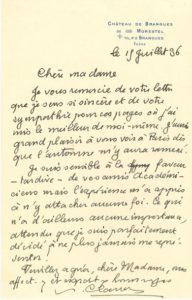 CHÂTEAU DE BRANGUES
MORESTEL
BRANGUES
ISÈRE
le 15 Juillet 36
Chère madame
Je vous remercie de votre lettre
que je sens si sincère et de votre
sympathie pour ces pages où j'ai
mis le meilleur de moi-même. J'aurai
grand plaisir à vous voir à Paris dès
que l'automne m'y aura ramené.
Je suis sensible à la faveur
- tardive - de vos amis Académi-
ciens mais l'expérience m'a appris
à n'y attacher aucune foi. Ce qui
n'a d'ailleurs aucune importance
attendu que je suis parfaitement
décidé à ne plus jamais me repré-
senter!
Veuillez agréer, chère Madame, mes
affect. et respect. hommages
Claudel